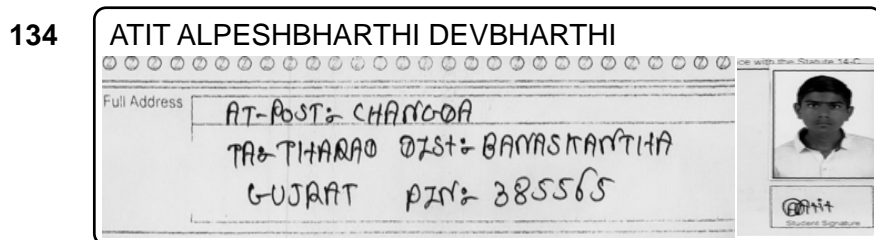 134 ATIT ALPESHBHARTHI DEVBHARTHI
ce with the Statute 14-C
Full Address
AT-POST:- CHANGDA
TA:- THARAD DIST:- BANASKANTHA
GUJRAT PIN:- 385565
Student Signature